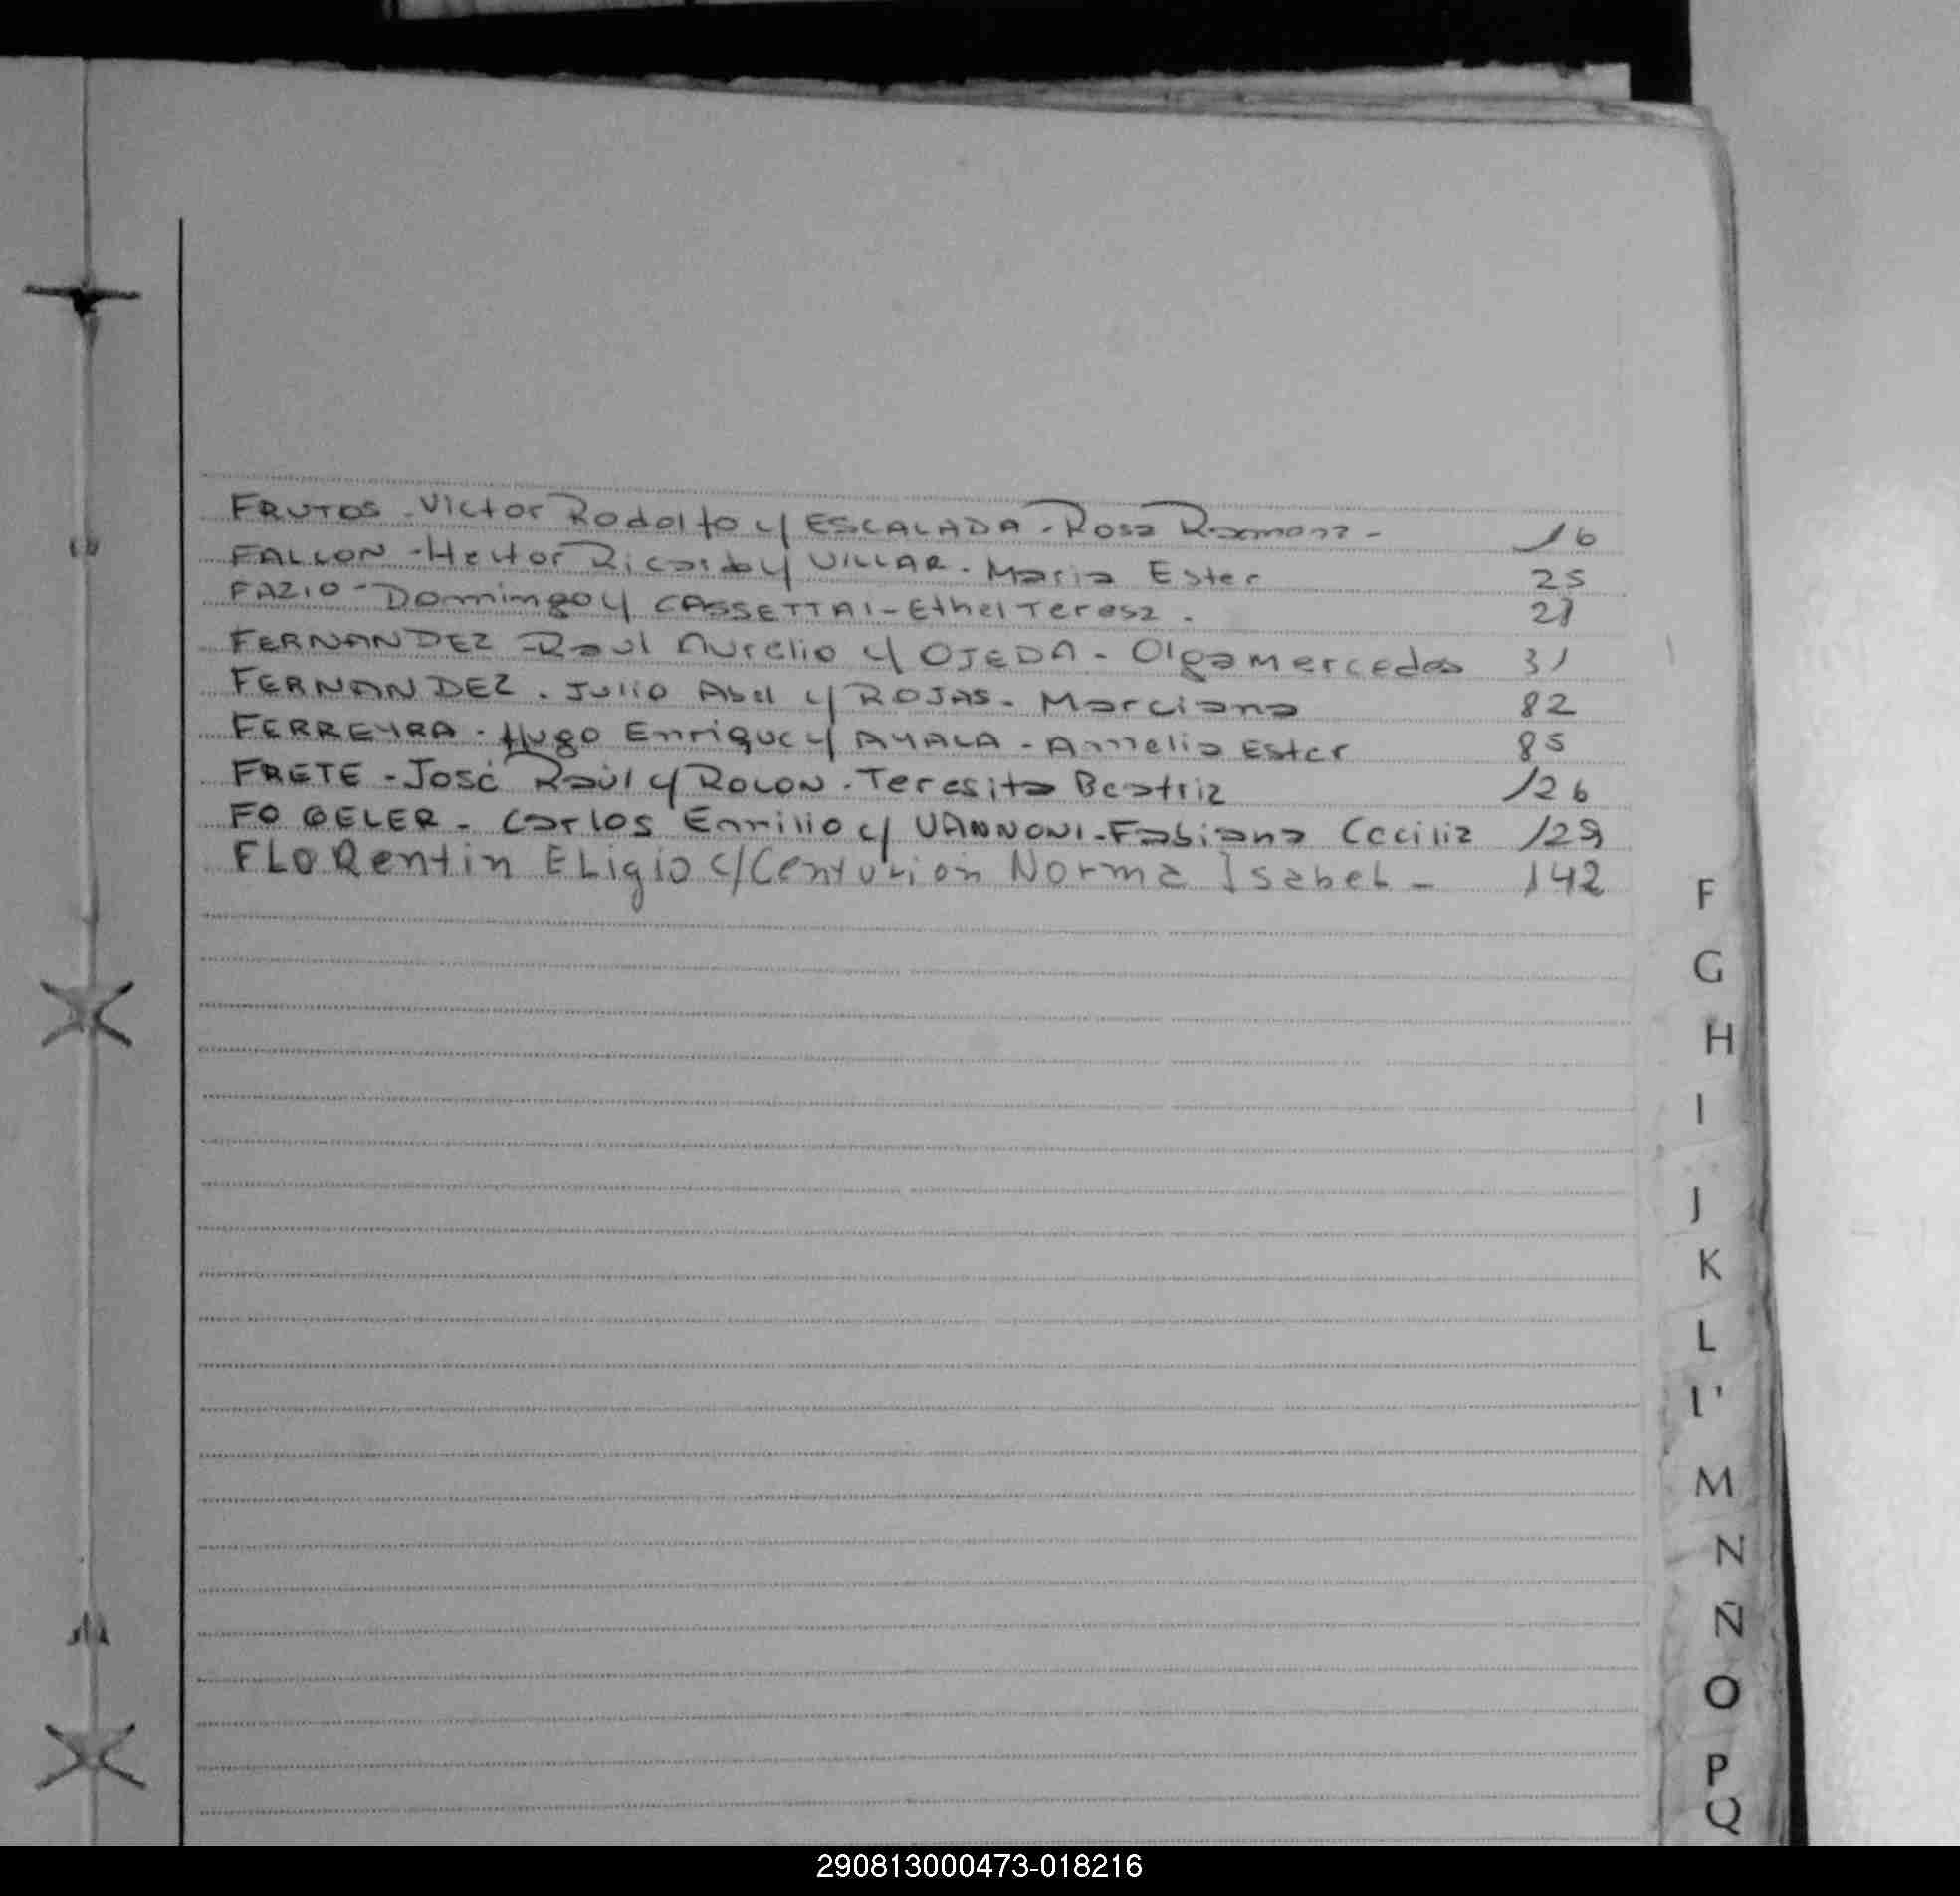 FRUTOS - Victor Rodolfo y ESCALADA - Rosa Ramona - 16
FALLON - Hector Ricardo y VILLAR - Maria Ester 25
FAZIO - Domingo y CASSETTAI - Ethel Teresa .
FERNANDEZ - Raul Aurelio y OJEDA - Olga mercedes 31
FERNANDEZ - Julio Abel y ROJAS - Marciana 82
FERREYRA - Hugo Enrique y AYALA - Amelia Ester 85
FRETE - José Raúl y ROLON - Teresita Beatriz 126
FOGELER - Carlos Emilio c/ VANNONI - Fabiana Cecilia 129
FLORentin ELigio c/ Centurión Norma IsabeL - 142
F
G
H
I
J
K
L
M
N
Ñ
O
P
Q
290813000473-018216